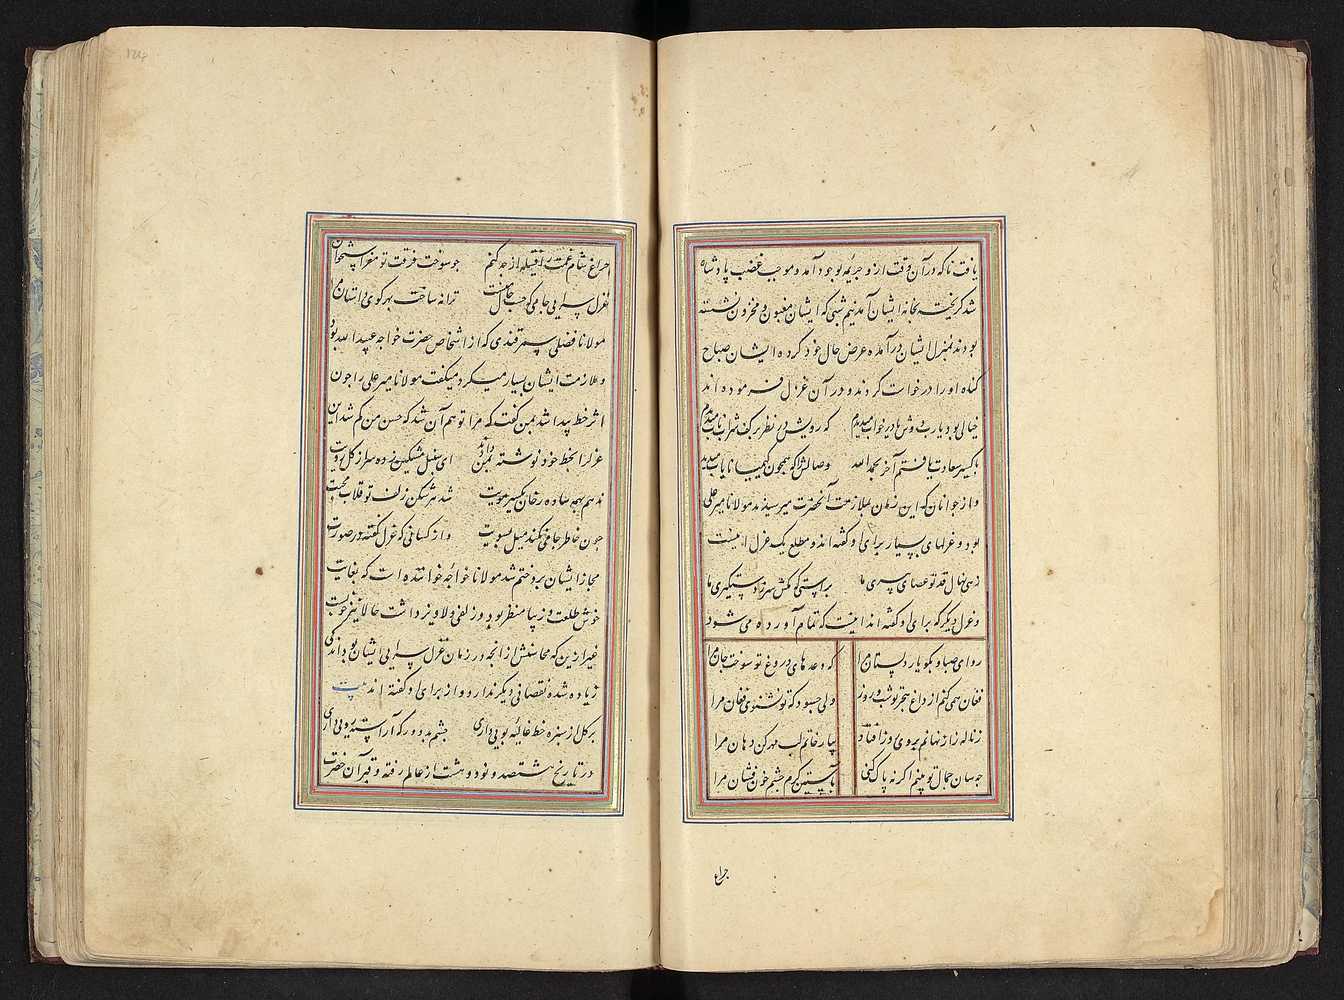 یافت ناکه در آن وقت از و جریمه بوجود آمد و موجب غضب پادشاه
شد کریخته بخانه ایشان آمد نیم شبی که ایشان مغبون و مخزون نشسته
بودند بمنزل ایشان درآمده عرض حال خود کرده ایشان صباح
کناه او را درخواست کردند و در آن غزل فرموده اند
خیالی بود یارب دوش یا در خواب میدیدم که رویش در نظر بر کف شراب ناب میدیدم
باکسیر سعادت یافتم آخر بحمد الله وصالش را که همچون کیمیا نایاب میدیدم
و از جوانان که این زمان ملازمت آنحضرت میرسیدند مولانا میر علی
بود و غزلهای بسیار برای او کفته اند و مطلع یک غزل اینست
زهی نهال قد تو عصای پیری ما براستی که مکش سر ز دستگیری ما
و غزل دیگر که برای او کفته اند اینست که تمام آورده می شود
رو ای صبا و بکو یار دلستان مرا که وعده های دروغ تو سوخت جان مرا
فغان همی کنم از داغ هجر تو شب و روز ولی چه سود که تو نشنوی فغان مرا
ز ناله راز نهانم بروی روز افتاد بیا ز خاتم لب مهر کن دهان مرا
چه سان جمال تو بینم اکر نه پاک کنی بآستین کرم چشم خون فشان مرا
چراغ
چراغ شام غمت را فتیله از چه کنم چو سوخت فرقت تو مغز استخوان مرا
غزل سرایی جامی که حسب حال منست ترانه ساخت بهر کوی داستان مرا
مولانا فضلی سمرقندی که از اشخاص حضرت خواجه عبید الله بود
و ملازمت ایشان بسیار میکرد میکفت مولانا میر علی را چون
اثر خط پیدا شد بمن کفت که مرا توهم آن شد که حسن من کم شد این
غزل را بخط خود نوشته بمن داند ای سنبل مشکین زده سر از کل رویت
ندهم بهمه ساده رخان یکسر مویت شد سر شکن زلف تو قلاب محبت
چون خاطر جامی نکند میل بسویت و از کسانی که غزل کفته در صورت
مجاز ایشان برو ختم شد مولانا خواجه خوانده است که بغایت
خوش طلعت و زیبا منظر بود و زلفی دلاویز داشت حالا نیز خوبست
غیر از این که محاسنش از آنچه در زمان غزل سرایی ایشان بود اندکی
زیاده شده نقصانی دیکر ندارد و از برای او کفته اند بیت
بر کل از سبزه خط غالیه بویی داری چشم بد دور که آراسته رویی داری
در تاریخ هشتصد و نود و هشت از عالم رفته و قبر آن حضرت